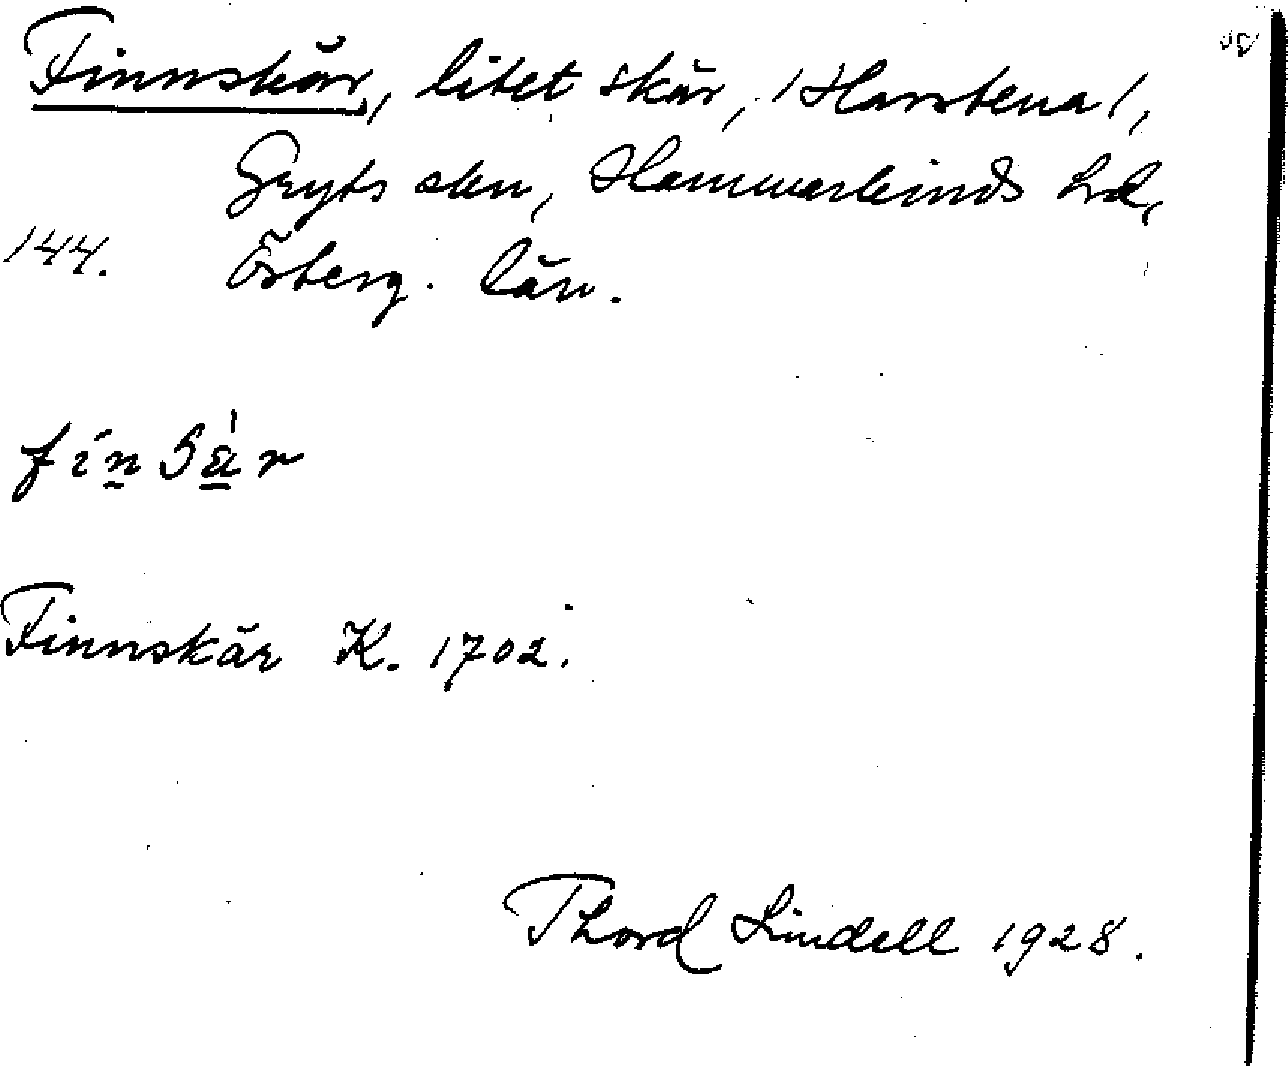 Finnskär, litet skär, /Harstena/,
Gryts skn, Hammarkinds hd,
144. Österg. län.
Finnskär K. 1702.
Thord Lindell 1928.